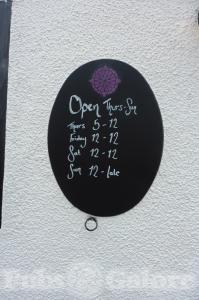 Open Thurs-Sun
Thurs 5-12
Friday 12-12
Sat 12-12
Sun 12-late
Pubs Galore